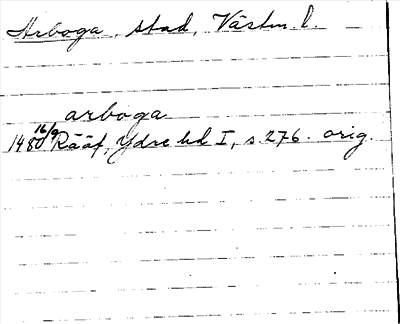 Arboga, stad, Västm. l.
arboga
1480 16/9 Rääf, Ydre hd I, s. 276. orig.